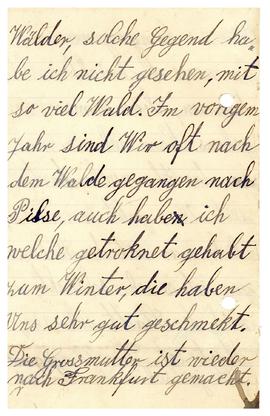 Wälder, solche Gegend ha-
be ich nicht gesehen, mit
so viel Wald. Im vorigem
Jahr sind Wir oft nach
dem Walde gegangen nach
Pilse, auch haben ich
welche getroknet gehabt
zum Winter, die haben
Uns sehr gut geschmekt.
Die Grossmutter ist wieder
nach Frankfurt gemacht.